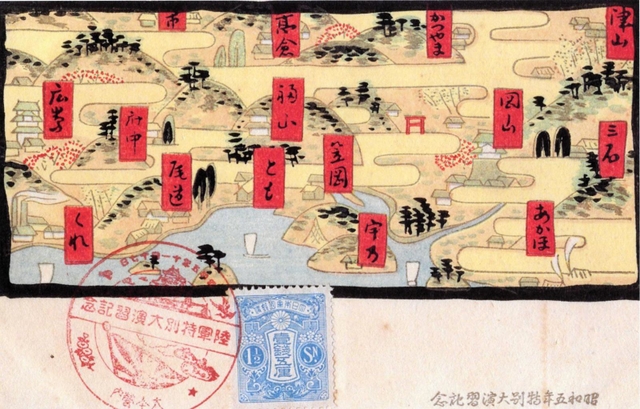 津山
かつやま
三石
岡山
福山
府中
広島
笠岡
とも
尾道
あかほ
宇乃
くれ
陸軍特別大演習記念
大本營内
壹錢五厘
1½ Sn
昭和五年特別大演習記念